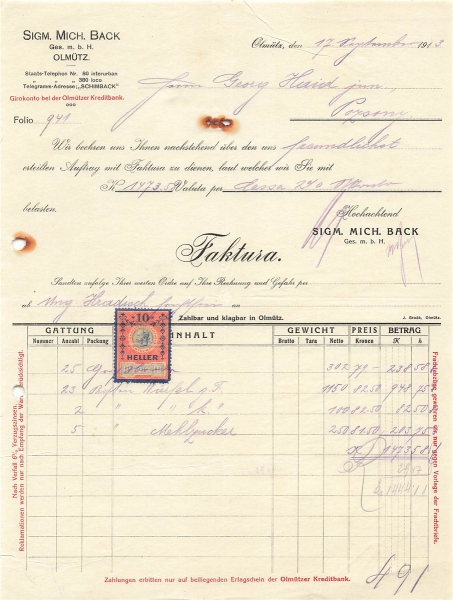 SIGM. MICH. BACK
Ges. m. b. H.
OLMÜTZ.
Staats-Telephon Nr. 80 interurban
" " 380 loco
Telegramm-Adresse: „SCHIMBACK"
Girokonto bei der Olmützer Kreditbank.
Olmütz, den 17 September 1913
Herrn Georg Haid jun.
Pozsony
Folio 941
Wir beehren uns Ihnen nachstehend über den uns freundlichst
erteilten Auftrag mit Faktura zu dienen, laut welcher wir Sie mit
K 1473.58 Valuta per Cassa 2%
belasten.
Hochachtend
SIGM. MICH. BACK
Ges. m. b. H.
Faktura.
Sandten zufolge Ihrer werten Ordre auf Ihre Rechnung und Gefahr per
ab Ung. Hradisch
Zahlbar und klagbar in Olmütz.
J. Groák, Olmütz.
GATTUNG INHALT GEWICHT PREIS BETRAG
Nummer Anzahl Packung Brutto Tara Netto Kronen K h
10
HELLER
25 302 79 - 238 58
23 Würfel 1150 82 50 948 75
2 " " 100 82 50 82 50
5 " Mehlzucker 250 81 50 203 75
K 1473 58
29 47
K 1444 11
491
Nach Verfall 6% Verzugszinsen.
Reklamationen werden nur nach Empfang der Ware berücksichtigt.
Frachtabzüge gewähren wir nur gegen Vorlage der Frachtbriefe.
Zahlungen erbitten nur auf beiliegenden Erlagschein der Olmützer Kreditbank.